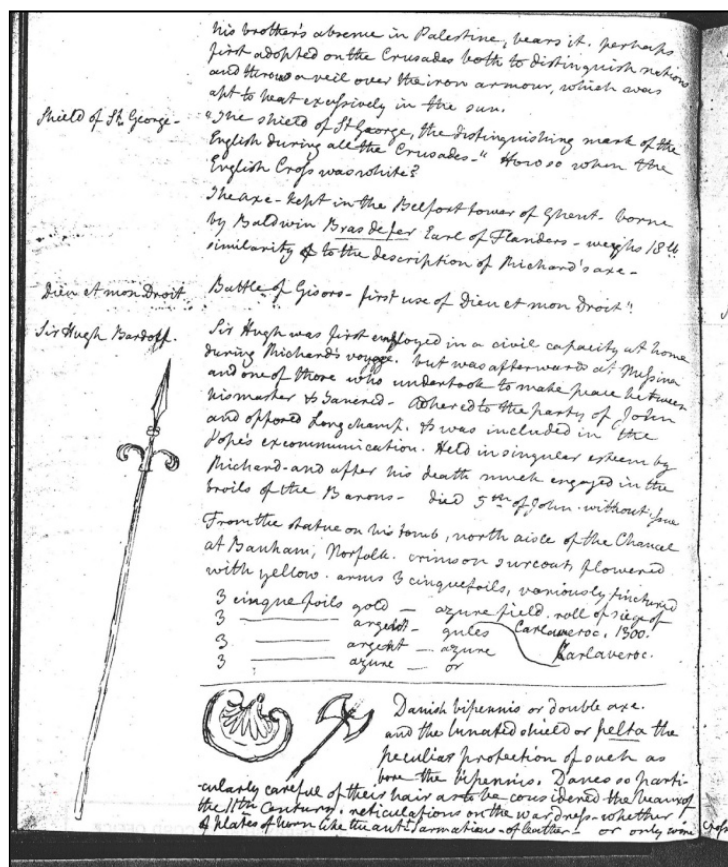 his brother's absence in Palestine, bears it. perhaps
first adopted on the Crusades both to distinguish nations
and throw a veil over the iron armour, which was
apt to heat excessively in the sun.
Shield of St. George -
"The shield of St George, the distinguishing mark of the
English during all the Crusades -" How so when the
English Cross was white?
The axe - kept in the Belfort tower of Ghent - borne
by Baldwin Bras de fer Earl of Flanders - weighs 18 lb
similarity to the description of Richard's axe -
Dieu et mon Droit
Battle of Gisors - first use of Dieu et mon Droit"
Sir Hugh Bardolf.
Sir Hugh was first employed in a civil capacity at home
during Richard's voyage. but was afterwards at Messina
and one of those who undertook to make peace between
his master & Tancred - adhered to the party of John
and opposed Longchamp. & was included in the
Pope's excommunication. Held in singular esteem by
Richard - and after his death much engaged in the
broils of the Barons - died 5th of John. without Issue
From the statue on his tomb, north aisle of the Chancel
at Banham, Norfolk. crimson surcoat, flowered
with yellow. arms 3 cinquefoils, variously tinctured
3 cinque foils gold — azure field. roll of siege of
3 ——— argent - gules Carlaveroc. 1300.
3 ——— argent - azure Karlaveroc.
3 ——— azure — or
Danish bipennis or double axe.
and the lunated shield or pelta the
peculiar protection of such as
bore the bipennis. Danes so parti-
-cularly careful of their hair as to be considered the beaux of
the 11th Century. reticulations on the war dress - whether
of plates of horn like the - of leather - or only